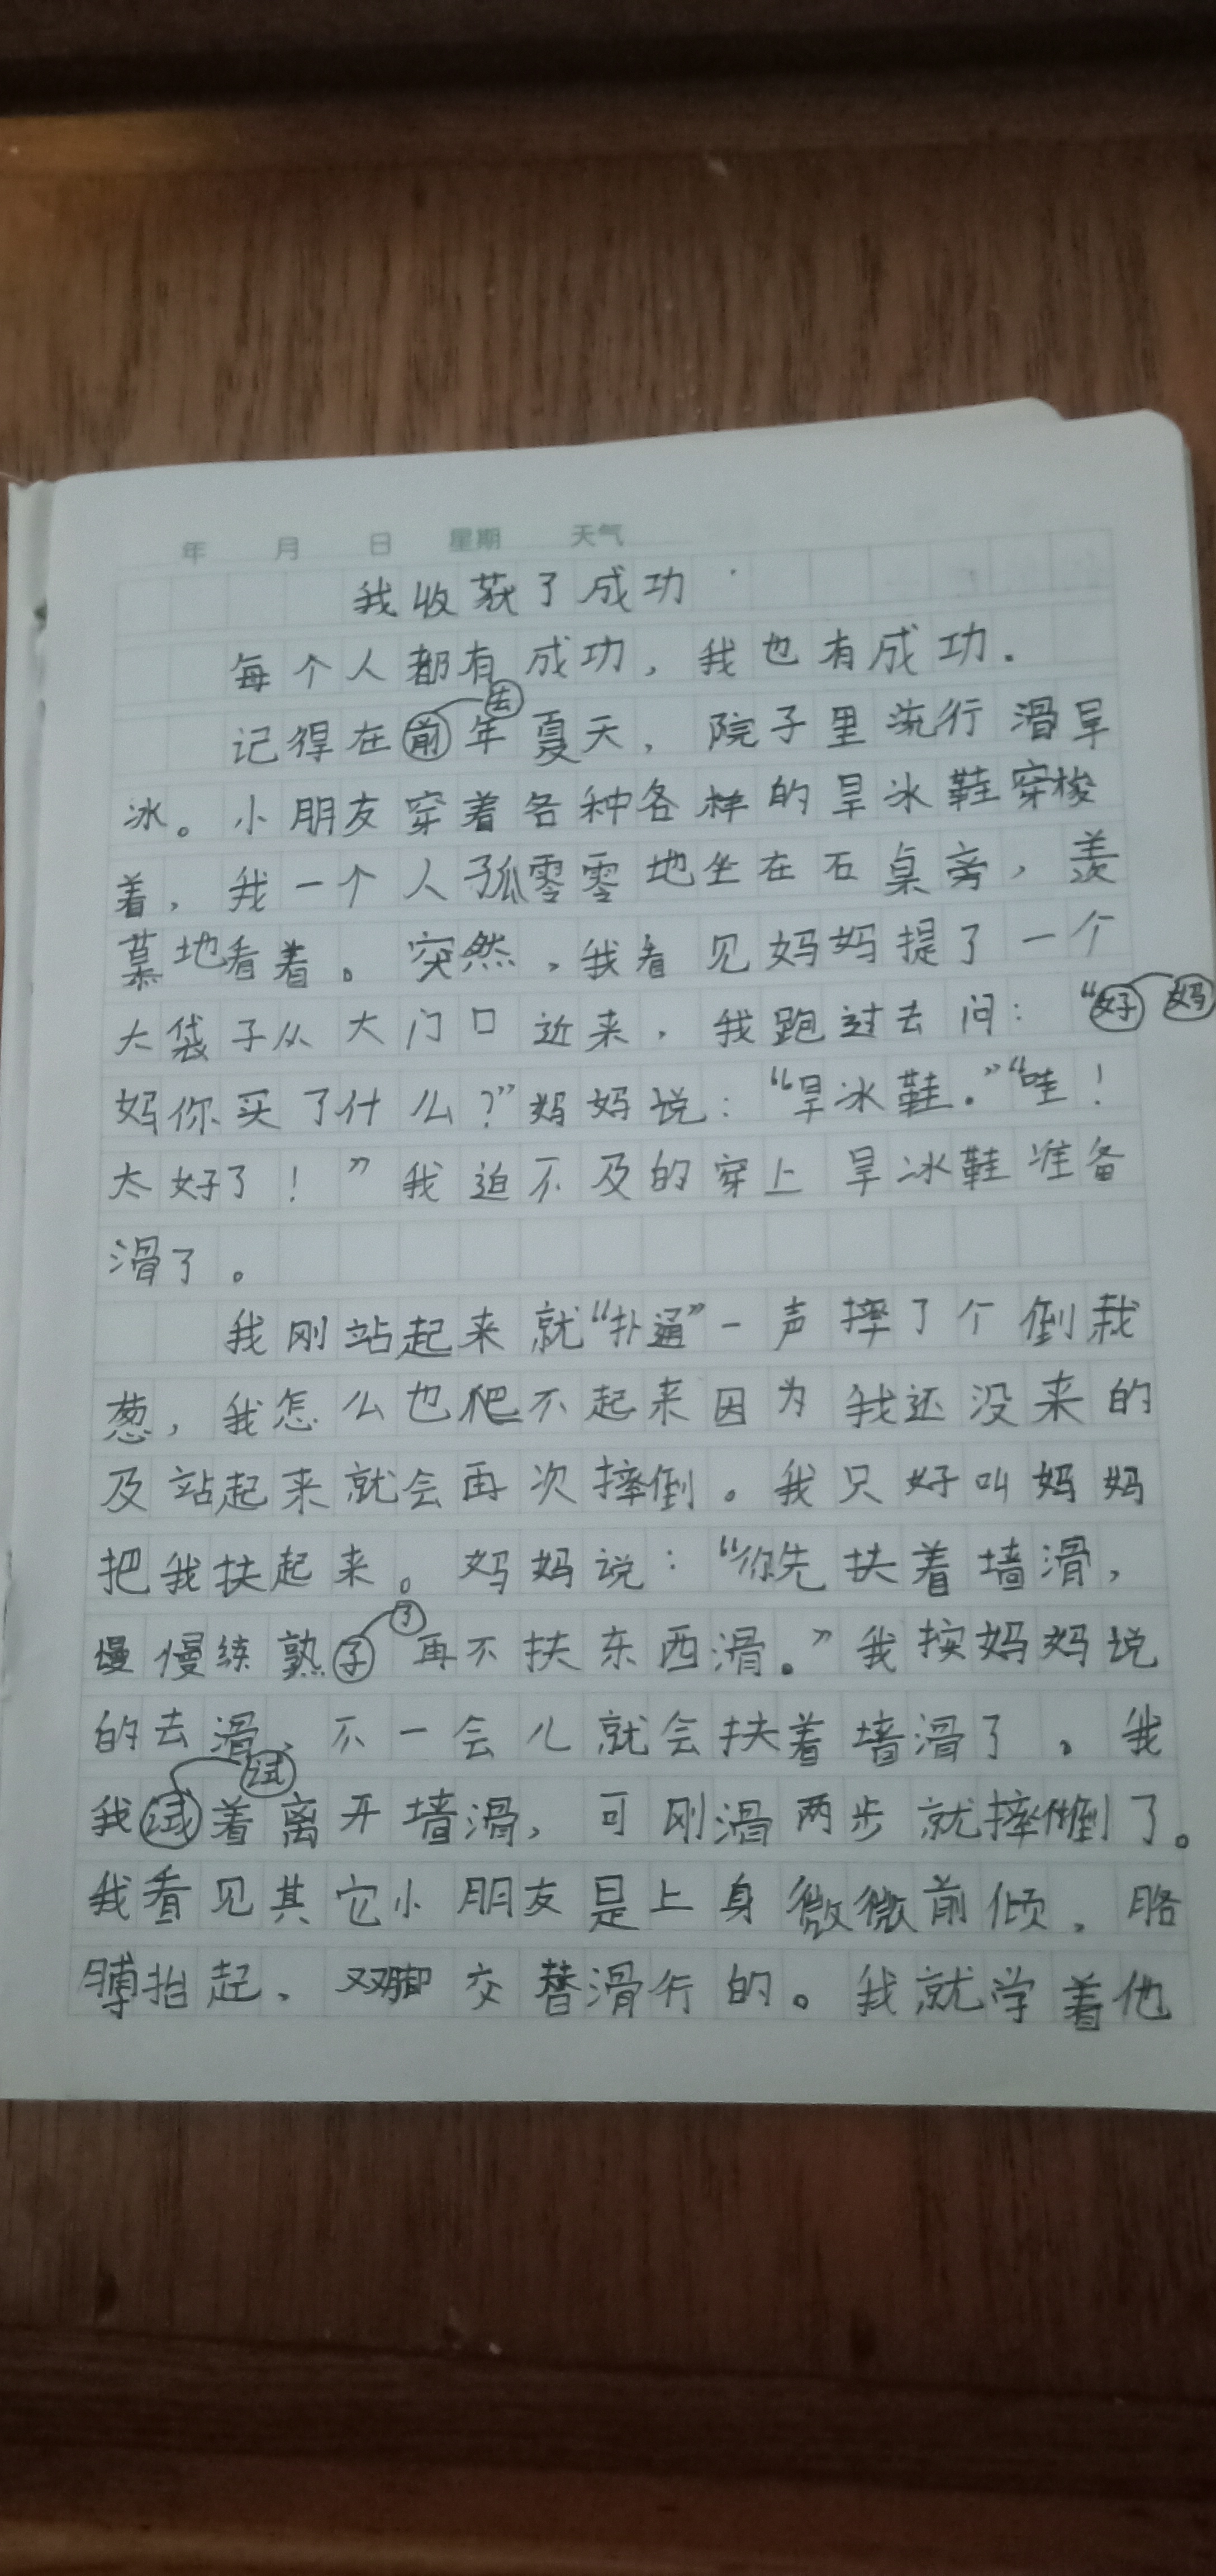 年 月 日 星期 天气
我收获了成功
每个人都有成功，我也有成功.
去
记得在前年夏天，院子里流行滑旱
冰。小朋友穿着各种各样的旱冰鞋穿梭
着，我一个人孤零零地坐在石桌旁，羡
慕地看着。突然，我看见妈妈提了一个
大袋子从大门口近来，我跑过去问：“好 妈
妈你买了什么？”妈妈说：“旱冰鞋.”“哇！
太好了！”我迫不及的穿上旱冰鞋准备
滑了。
我刚站起来就“扑通”一声摔了个倒栽
葱，我怎么也爬不起来因为我还没来的
及站起来就会再次摔倒。我只好叫妈妈
把我扶起来。妈妈说：“你先扶着墙滑，
了
慢慢练熟子再不扶东西滑。”我按妈妈说
的去滑，不一会儿就会扶着墙滑了。我
试
我试着离开墙滑，可刚滑两步就摔倒了。
我看见其它小朋友是上身微微前倾，胳
膊抬起，双脚交替滑行的。我就学着他